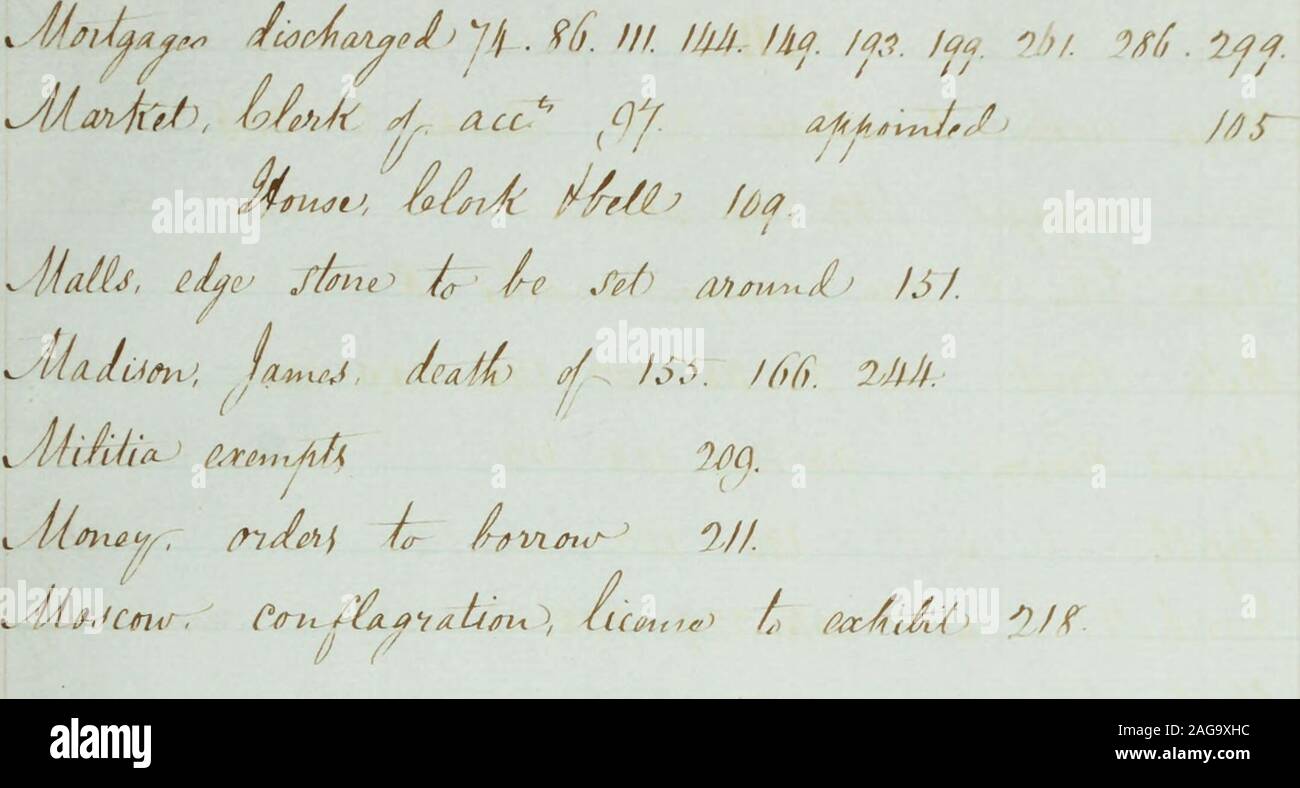 Mortgages discharged 74. 86. 111. 144. 149. 193. 199. 261. 286. 299.
Market, Clerk of acc.ts 97. appointed 105
House, Clock & bell 109.
Malls, edge stone to be set around 151.
Madison, James, death of 155. 166. 244.
Militia exempts 209.
Money, orders to borrow 211.
Moscow. conflagration, license to exhibit 218.
alamy
alamy
Image ID: 2AG9XHC
www.alamy.com